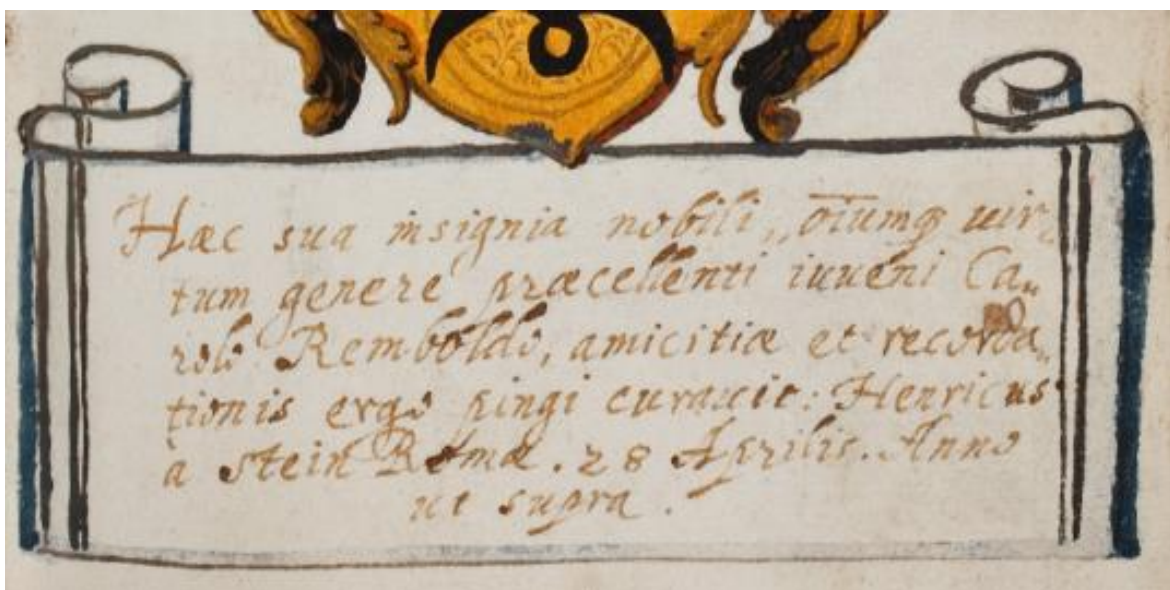 Hæc sua insignia nobili, oiumq uir-
tum genere præcellenti iuueni Ca„
rolo Remboldo, amicitiæ et recorda„
tionis ergo pingi curauit: Henricus
a Stein Romæ. 28 Aprilis. Anno
ut supra.